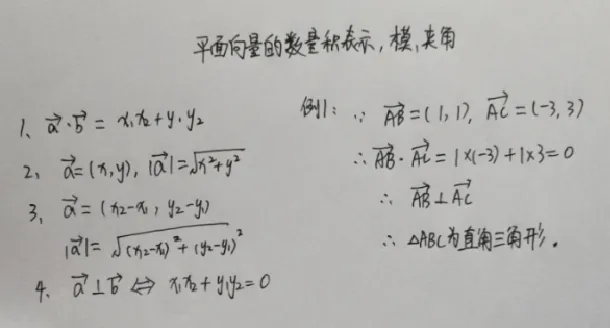 平面向量的数量积表示,模,夹角
1、\vec{a}·\vec{b} = x₁x₂+y₁y₂
2、\vec{a}=(x,y),|\vec{a}|=√(x²+y²)
3、\vec{a}=(x₂-x₁,y₂-y₁)
|\vec{a}|=√((x₂-x₁)²+(y₂-y₁)²)
4、\vec{a}⊥\vec{b} ⇔ x₁x₂+y₁y₂=0
例1:∵ \vec{AB}=(1,1),\vec{AC}=(-3,3)
∴\vec{AB}·\vec{AC}=1×(-3)+1×3=0
∴ \vec{AB}⊥\vec{AC}
∴ △ABC为直角三角形.